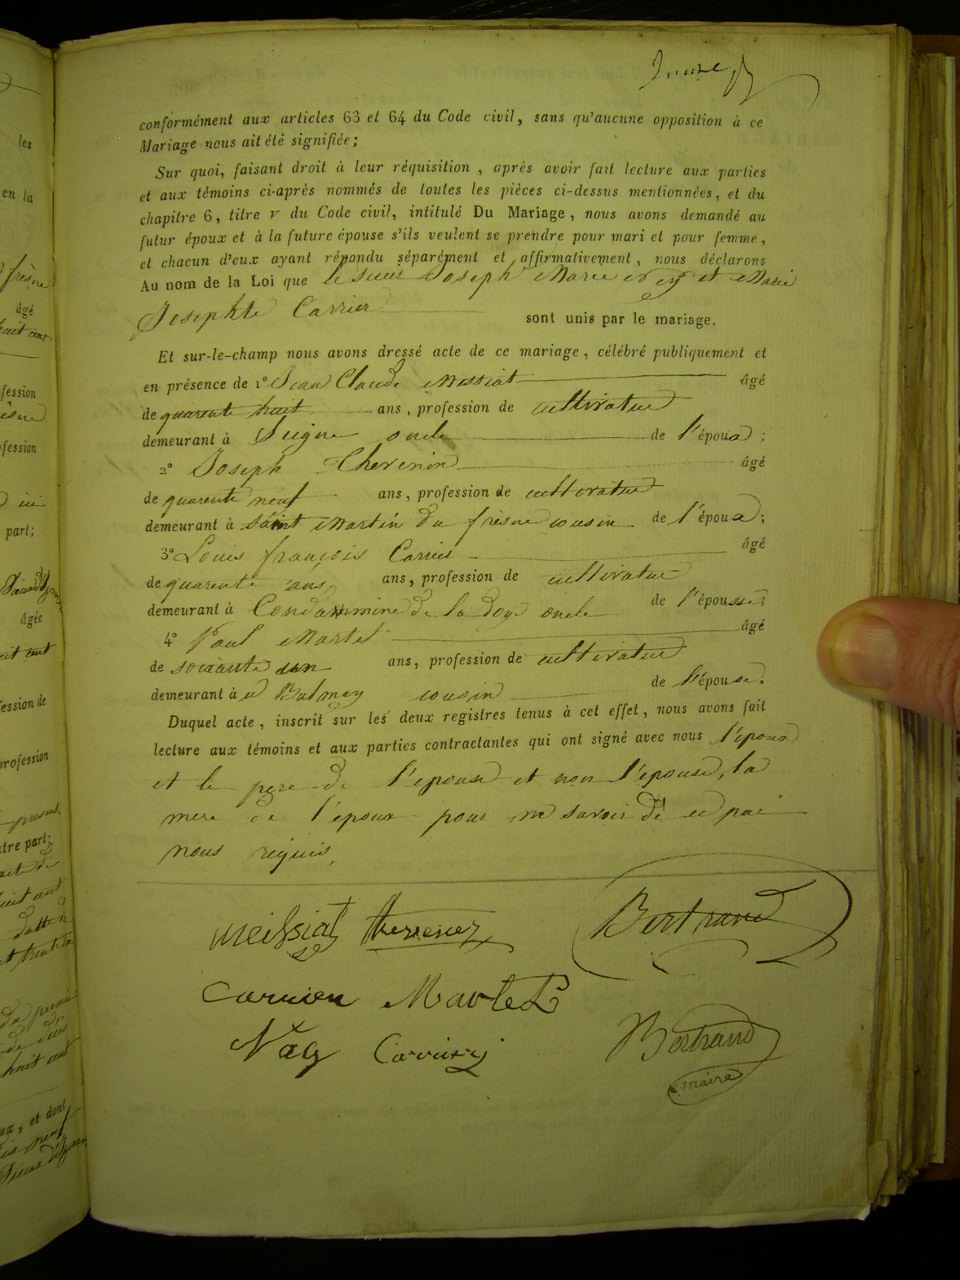 conformément aux articles 63 et 64 du Code civil, sans qu'aucune opposition à ce
Mariage nous ait été signifiée;
Sur quoi, faisant droit à leur réquisition, après avoir fait lecture aux parties
et aux témoins ci-après nommés de toutes les pièces ci-dessus mentionnées, et du
chapitre 6, titre v du Code civil, intitulé Du Mariage, nous avons demandé au
futur époux et à la future épouse s'ils veulent se prendre pour mari et pour femme,
et chacun d'eux ayant répondu séparément et affirmativement, nous déclarons
Au nom de la Loi que le sieur Joseph Marie et Marie
Josephte Carrier sont unis par le mariage.
Et sur-le-champ nous avons dressé acte de ce mariage, célébré publiquement et
en présence de 1° Jean Claude Messiat âgé
de quarente huit ans, profession de cultivateur
demeurant à oncle de l'époux;
2° Joseph Thevenin âgé
de quarente neuf ans, profession de cultivateur
demeurant à Saint Martin du fresne cousin de l'époux;
3° Louis françois Carrier âgé
de quarente ans, ans, profession de cultivateur
demeurant à Condammine de la doye oncle de l'épouse;
4° Paul Martel âgé
de soixante un ans, profession de cultivateur
demeurant à Balmay cousin de l'épouse.
Duquel acte, inscrit sur les deux registres tenus à cet effet, nous avons fait
lecture aux témoins et aux parties contractantes qui ont signé avec nous l'époux
et le pere de l'epouse et non l'epouse, la
mere de l'époux pour ne savoir de ce par
nous requis.
meissiat thevenin Bertrand
carrier Martel
Carrier Bertrand
maire
les
en la
fresne
âgé
huit cent
fession
fession
part;
âgée
ession de
rofession
present
tre part;
huit cent
, et dont